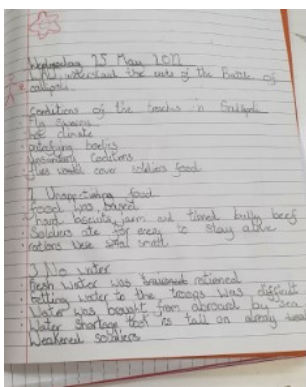 Wednesday 25 May 2022
understand the events of the Battle of
Gallipoli
Conditions of the trenches in Gallipoli
hot climate
putrefying bodies
unsanitary Conditions
flies would cover soldiers food
2 Unappetising food
food was based
hard biscuits, jam and tinned bully beef
Soldiers ate for energy to stay alive
rations were small
3 No water
Fresh water was rationed
Getting water to the troops was difficult
Water was bought from abroard by sea
Water shortage took its tall on already weak
Weakened soldiers